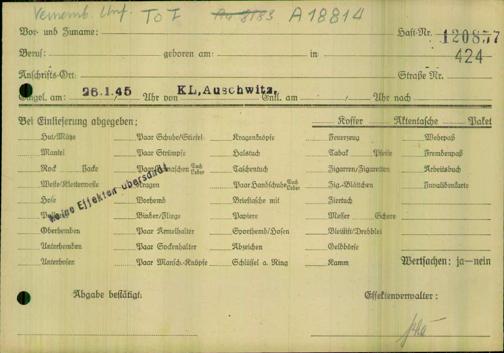 Tot A 8183 A 18814
Vor- und Zuname: Haft-Nr. 120857
424
Beruf: geboren am: in
Anschrifts-Ort: Straße Nr.
Eingel. am: 26.1.45 / Uhr von KL, Auschwitz, Entl. am / Uhr nach
Bei Einlieferung abgegeben: Koffer Aktentasche Paket
Hut/Mütze Paar Schuhe/Stiefel Kragenknöpfe Feuerzeug Wehrpaß
Mantel Paar Strümpfe Halstuch Tabak Pfeife Fremdenpaß
Rock Jacke Paar Gamaschen Tuch Leder Taschentuch Zigarren/Zigaretten Arbeitsbuch
Weste/Kletterweste Kragen Paar Handschuhe Tuch Leder Zig.-Blättchen Invalidenkarte
Hose Vorhemd Brieftasche mit Ziertuch
Binder/Fliege Papiere Messer Schere
Oberhemden Paar Ärmelhalter Sporthemd/Hosen Bleistift/Drehblei
Unterhemden Paar Sockenhalter Abzeichen Geldbörse
Unterhosen Paar Mansch.-Knöpfe Schlüssel a. Ring Kamm Wertsachen: ja—nein
Keine Effekten übersandt
Abgabe bestätigt: Effektenverwalter: